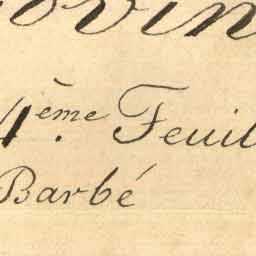 ovin
4ème Feuil
Barbé